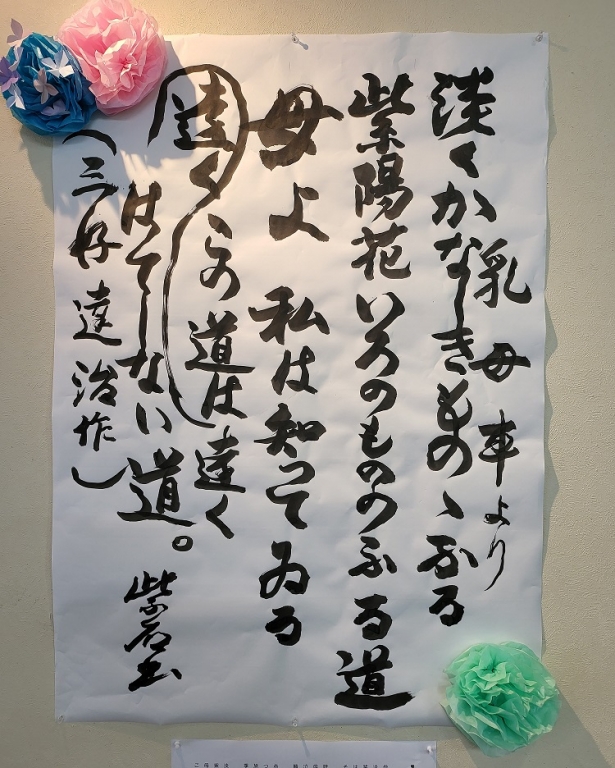 乳母車より
淡くかなしきもののふる
紫陽花いろのもののふる道
母よ 私は知ってゐる
この道は遠く遠く
はてしない道。
紫石書
(三好達治作)